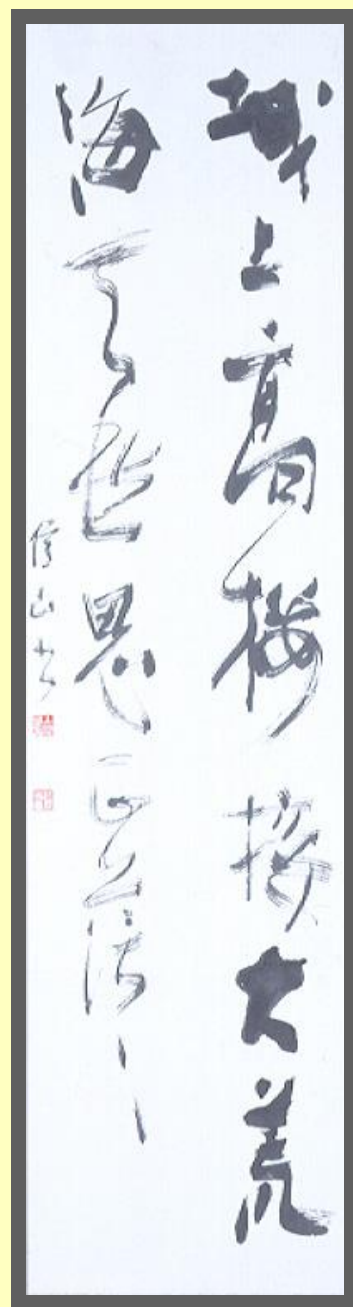 城上高樓接大荒
海天愁思正茫々
山書